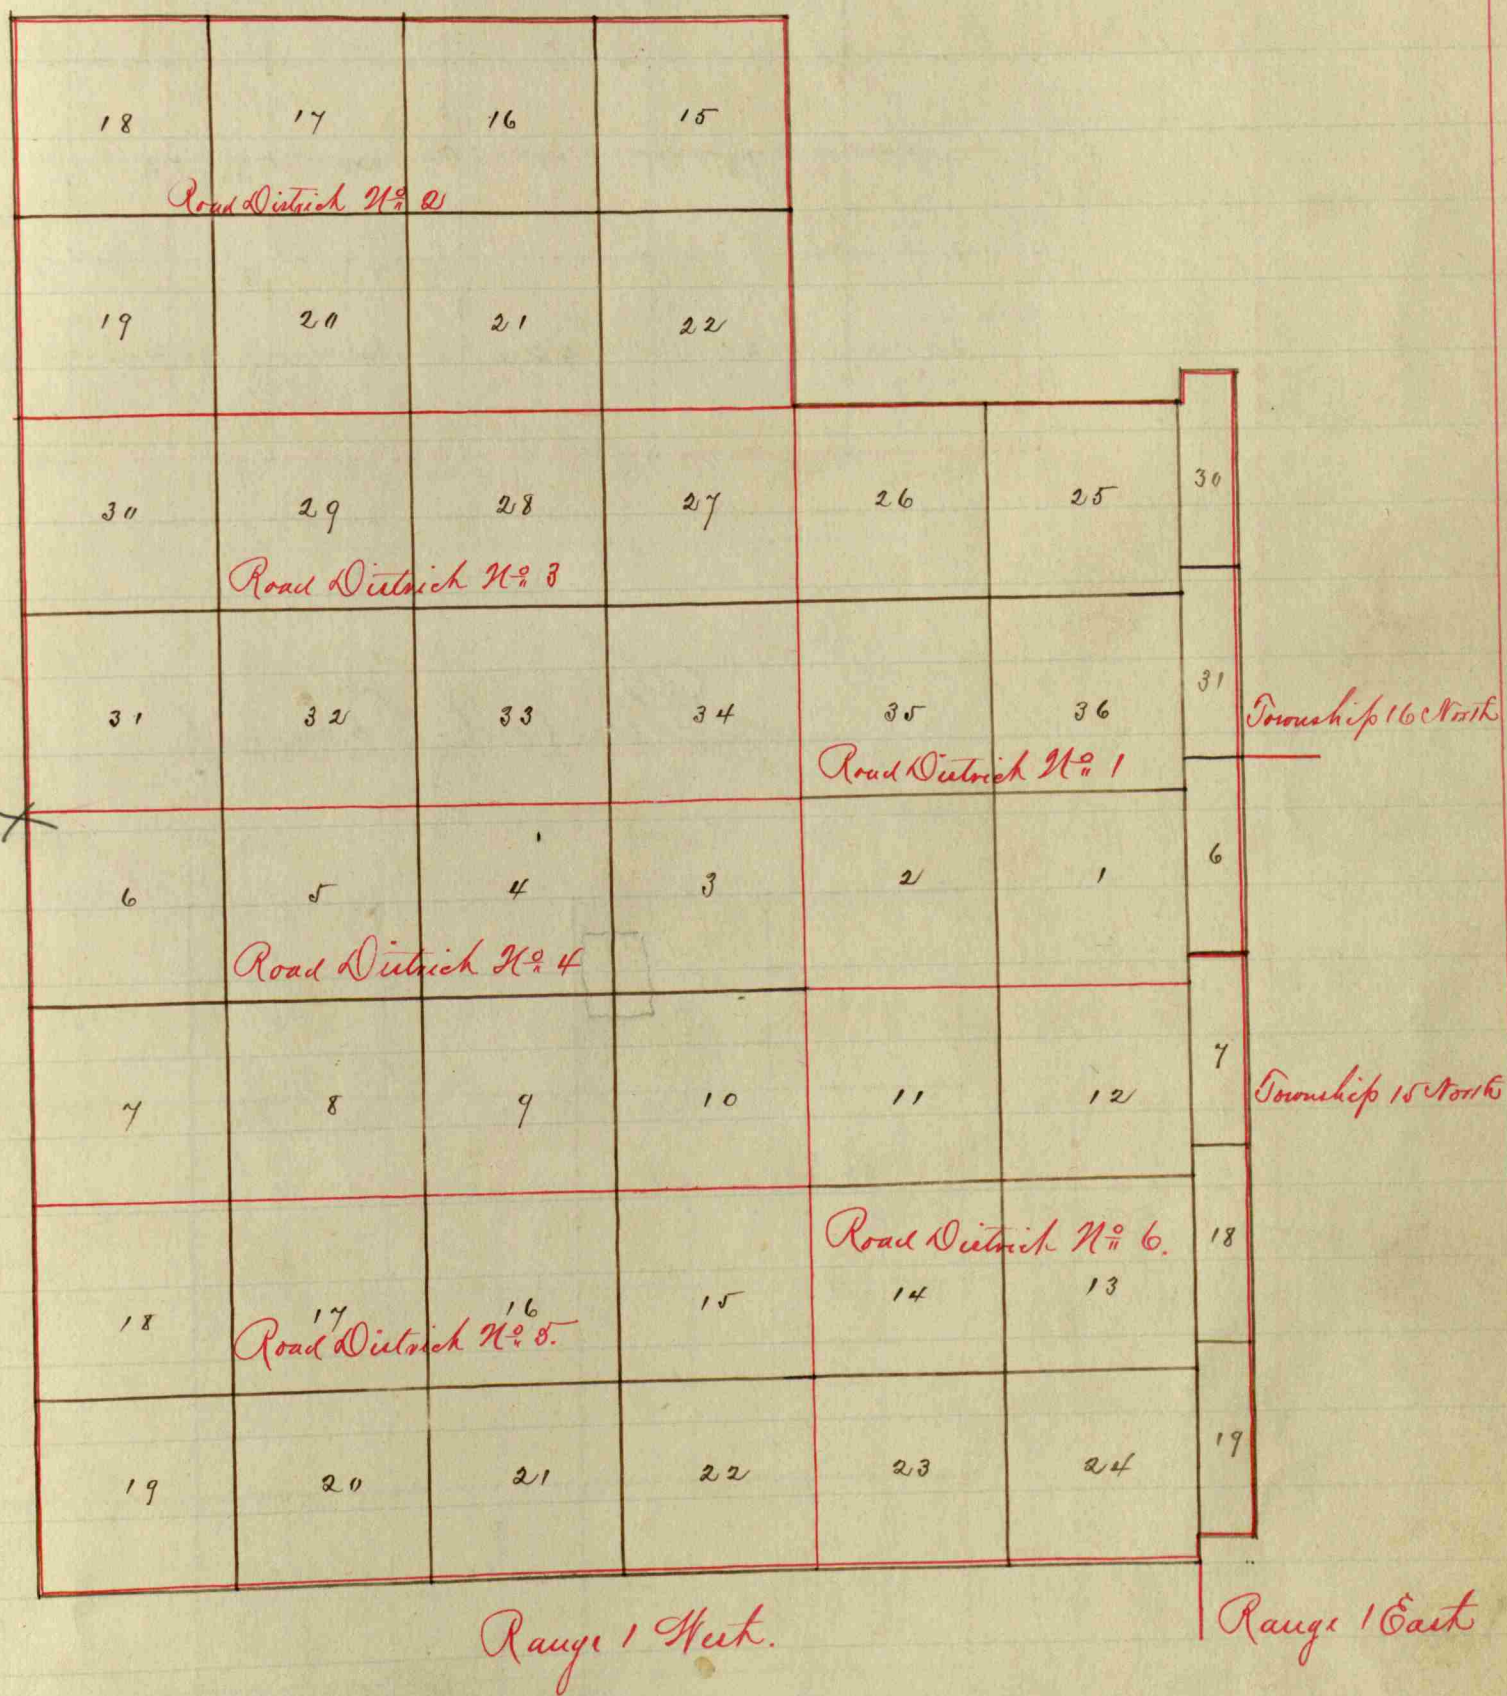 18 17 16 15
Road District No. 2
19 20 21 22
30 29 28 27 26 25 30
Road District No. 3
31 32 33 34 35 36 31
Township 16 North
Road District No. 1
6 5 4 3 2 1 6
Road District No. 4
7 8 9 10 11 12 7
Township 15 North
Road District No. 6.
18 17 16 15 14 13 18
Road District No. 5.
19 20 21 22 23 24 19
Range 1 West.
Range 1 East